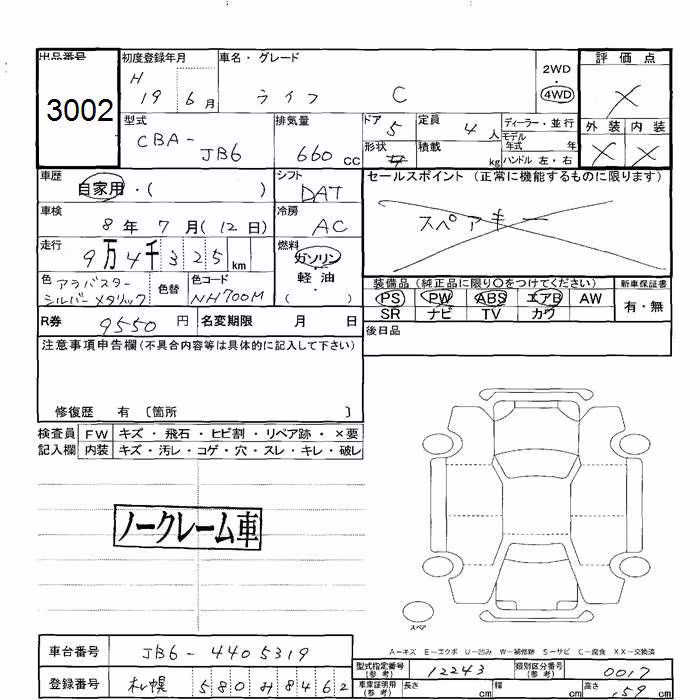 出品番号 初度登録年月 車名・グレード 2WD 評価点
3002 H 19 6月 ライフ C 4WD X
型式 排気量 ドア 定員 ディーラー・並行 外装 内装
CBA- 5 4人 モデル年式 年 X X
JB6 660cc 形状 積載 kg ハンドル 左・右
車歴 シフト セールスポイント (正常に機能するものに限ります)
自家用・( ) DAT
車検 冷房 スペアキー
8年 7月(12日) AC
走行 燃料
9万4千325km ガソリン
色 アラバスター 色替 色コード 軽油 装備品(純正品に限り○をつけてください) 新車保証書
シルバーメタリック NH700M ( ) PS PW ABS エアB AW 有・無
R券 9550円 名変期限 月 日 SR ナビ TV カワ
後日品
注意事項申告欄(不具合内容等は具体的に記入して下さい)
修復歴 有 〔箇所 〕
検査員 FW キズ・飛石・ヒビ割・リペア跡・×要
記入欄 内装 キズ・汚レ・コゲ・穴・スレ・キレ・破レ
ノークレーム車
スペア
A-キズ E-エクボ U-凹み W-補修跡 S-サビ C-腐食 XX-交換済
車台番号 JB6-4405319 型式指定番号(参考) 12243 類別区分番号(参考) 0017
登録番号 札幌 580み8462 車庫証明用(参考) 長さ cm 幅 cm 高さ 159cm